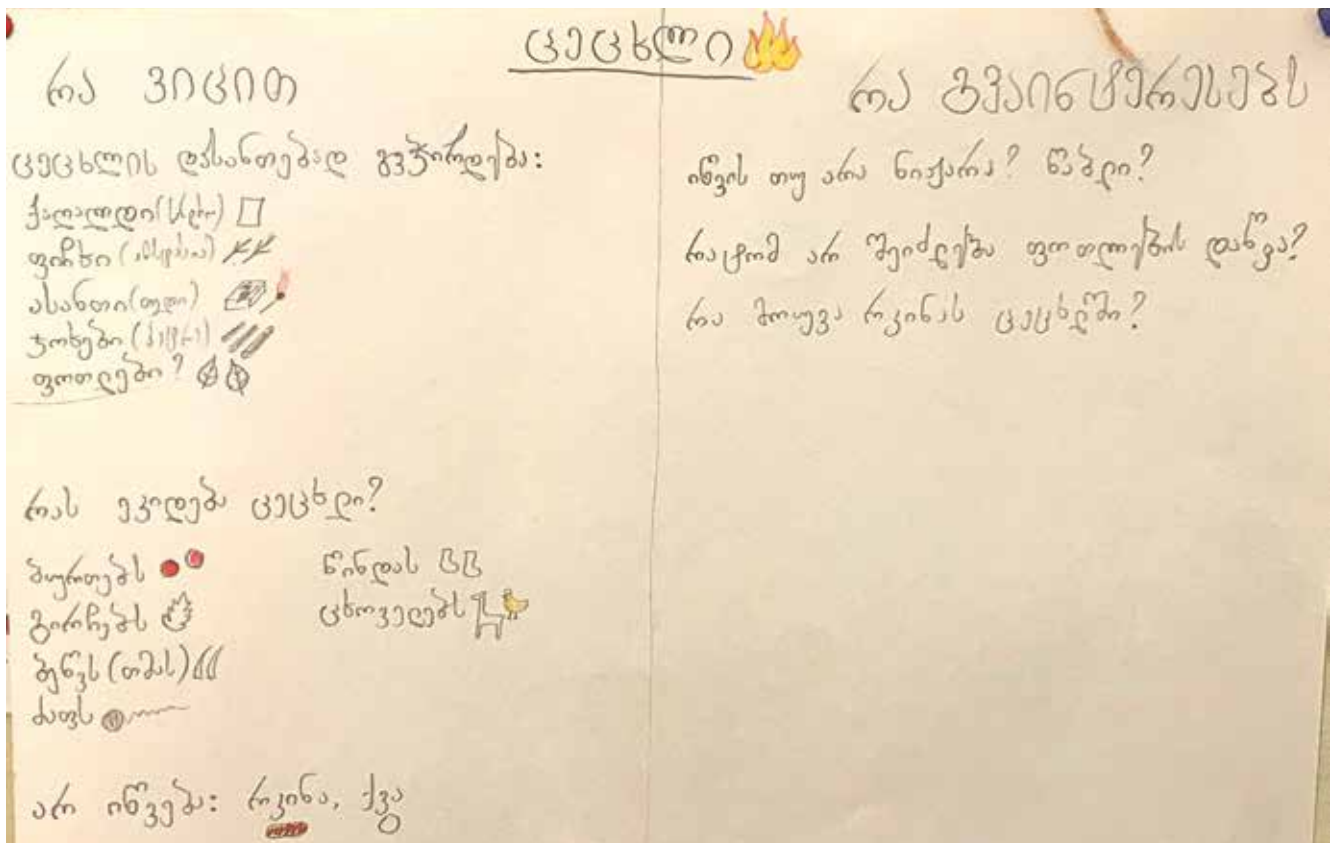 ცეცხლი
რა ვიცით
ცეცხლის დასანთებად გვჭირდება:
ქაღალდი
ფიჩხი
ასანთი
ჯოხები
ფოთლები?
რას ეკიდება ცეცხლი?
ბურთებს
გირჩებს
ბეწვს (თმას)
ძაფს
წინდას
ცხოველებს
არ იწვება: რკინა, ქვა
რა გვაინტერესებს
იწვის თუ არა ნიჟარა? წაბლი?
რატომ არ შეიძლება ფოთლების დაწვა?
რა მოუვა რკინას ცეცხლში?